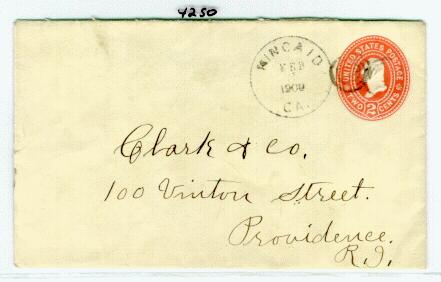 4250
KINCAID
FEB
1900
CA.
UNITED STATES POSTAGE
TWO 2 CENTS
Clark & Co.
100 Vinton Street.
Providence.
R.I.